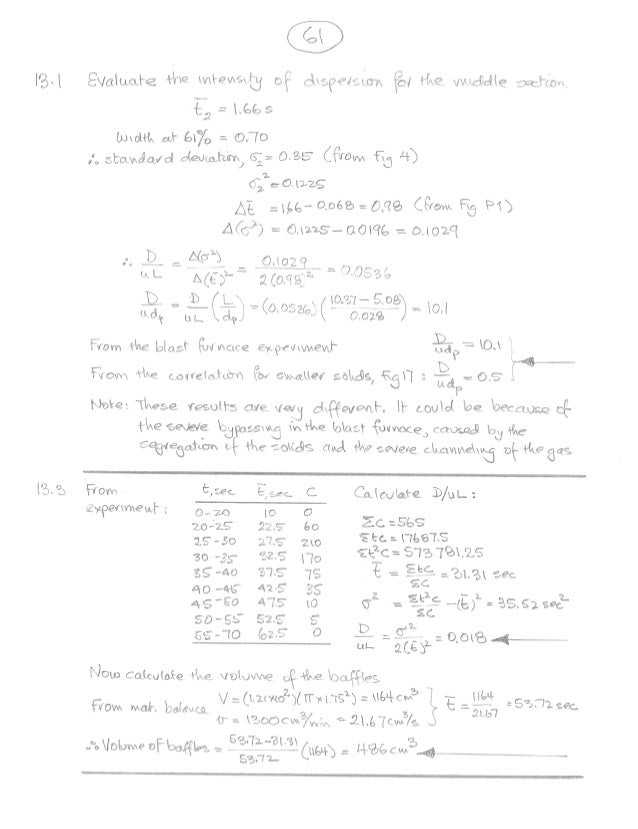 61
13.1 Evaluate the intensity of dispersion for the middle section.
t̄₂ = 1.66 s
Width at 61% = 0.70
∴ standard deviation, σ₂ = 0.35 (from Fig 4)
σ₂² = 0.1225
Δt̄ = 166 - 0.068 = 0.98 (from Fig P1)
Δ(σ²) = 0.1225 - 0.0196 = 0.1029
∴ D/uL = Δ(σ²)/Δ(t̄)² = 0.1029/2(0.98)² = 0.0536
D/udp = D/uL (L/dp) = (0.0536)(10.37 - 5.08/0.028) = 10.1
From the blast furnace experiment D/udp = 10.1
From the correlation for smaller solids, Fig 17 : D/udp = 0.5
Note: These results are very different. It could be because of
the severe bypassing in the blast furnace, caused by the
segregation of the solids and the severe channeling of the gas
13.3 From experiment: t, sec t̄, sec C Calculate D/uL :
0-20 10 0
20-25 22.5 60 ΣC = 565
25-30 27.5 210 ΣtC = 17687.5
30-35 32.5 170 Σt²C = 573781.25
35-40 37.5 75 t̄ = ΣtC/ΣC = 31.31 sec
40-45 42.5 35
45-50 47.5 10 σ² = Σt²C/ΣC - (t̄)² = 35.52 sec²
50-55 52.5 5
55-70 62.5 0 D/uL = σ²/2(t̄)² = 0.018
Now calculate the volume of the baffles
From mat. balance V = (1.21×10²)(π×1.75²) = 1164 cm³ } t̄ = 1164/21.67 = 53.72 sec
v = 1300 cm³/min = 21.67 cm³/s
∴ Volume of baffles = 53.72-31.31/53.72 (1164) = 486 cm³